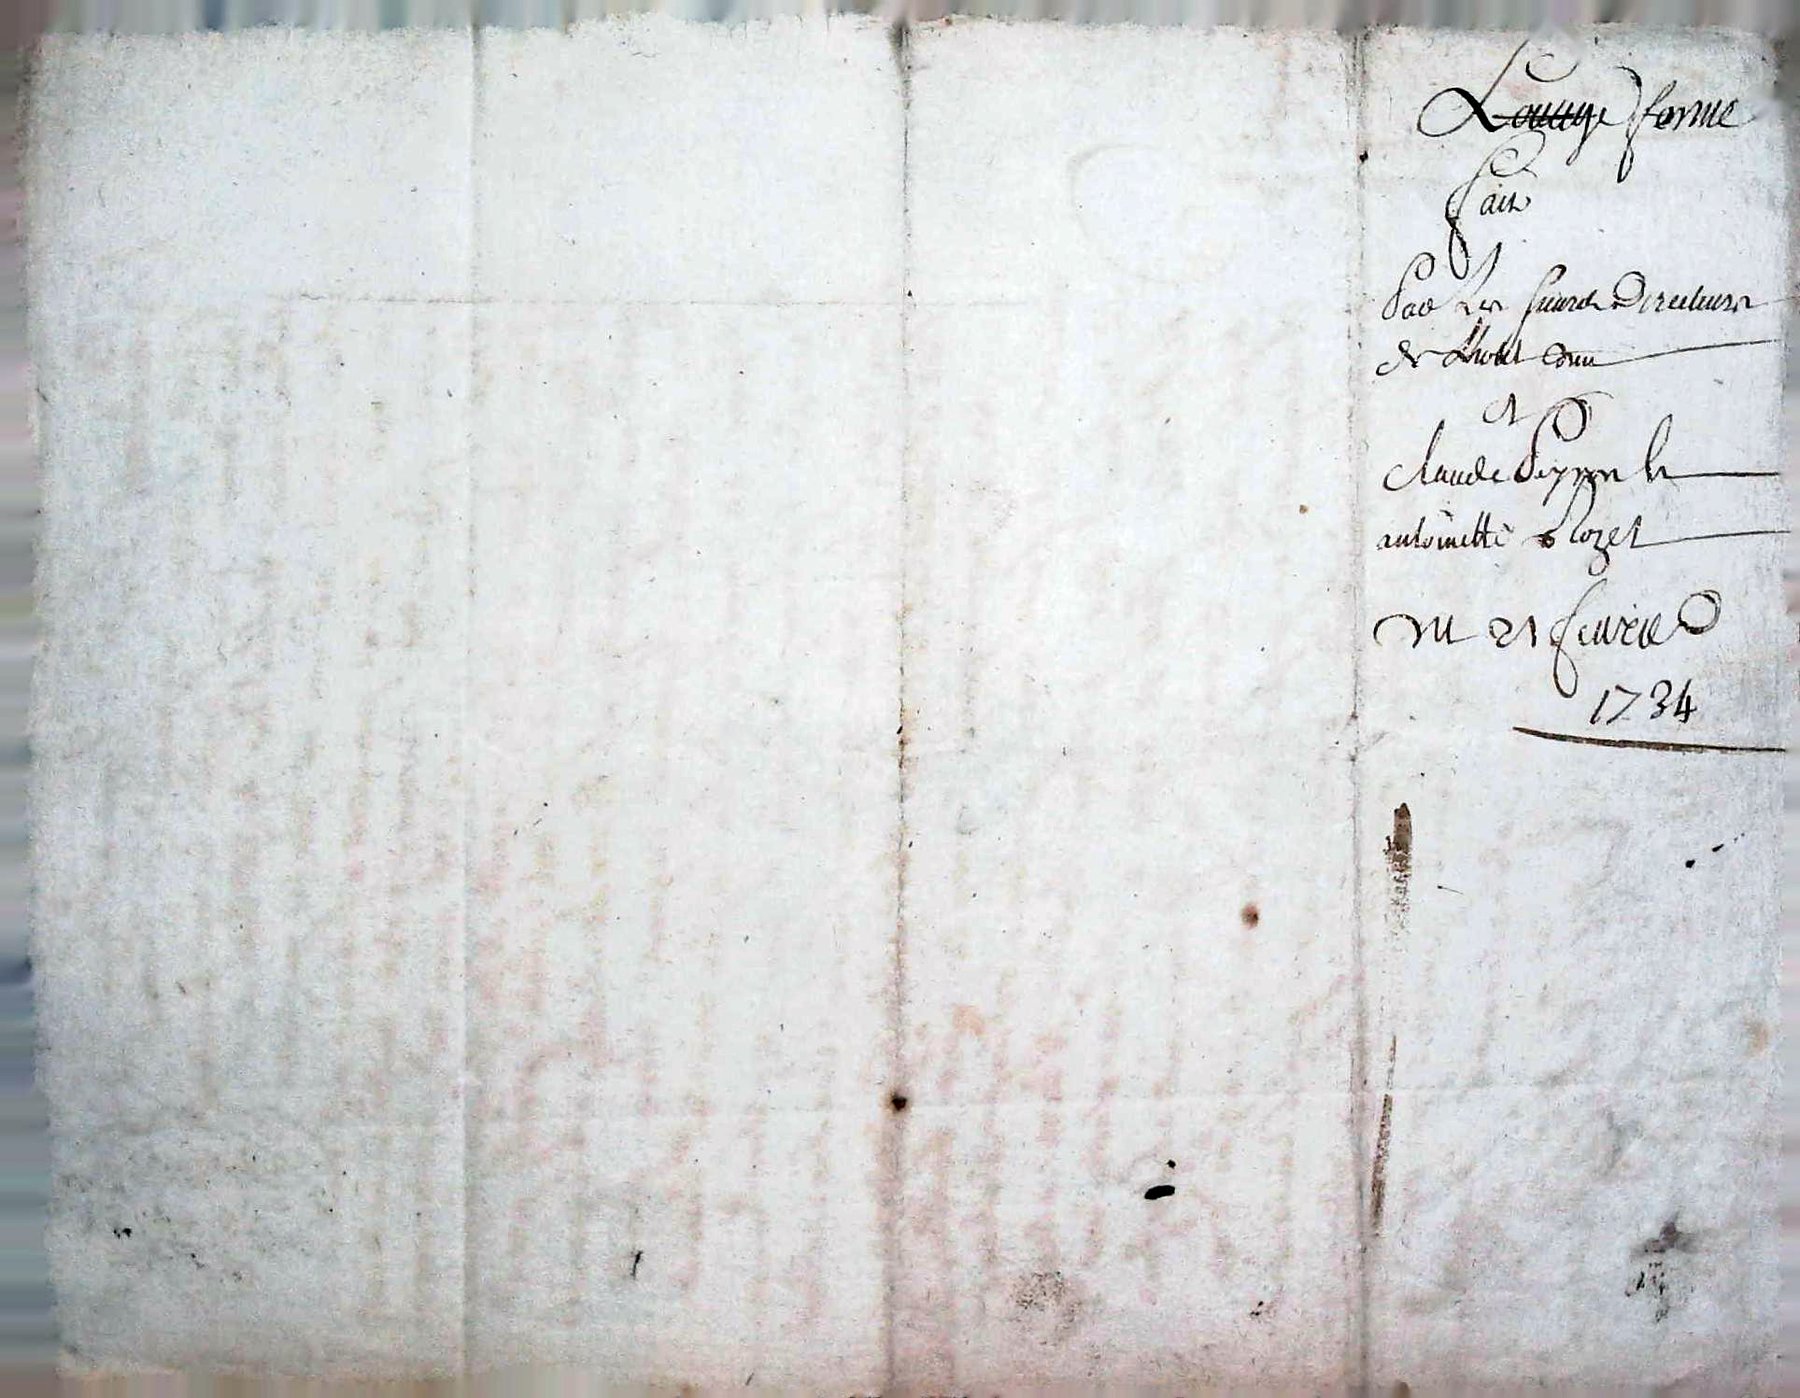 Louage ferme
fait
Par les sieurs Directeurs
de Lhotel
et
claude Peyron &
antoinette Rozet
Du 21 fevrier
1734